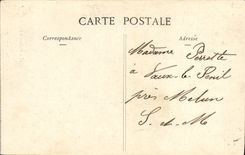 CARTE POSTALE
Correspondance
Adresse
Madame Perrette
à Vaux-le-Penil
près Melun
S.-et-M